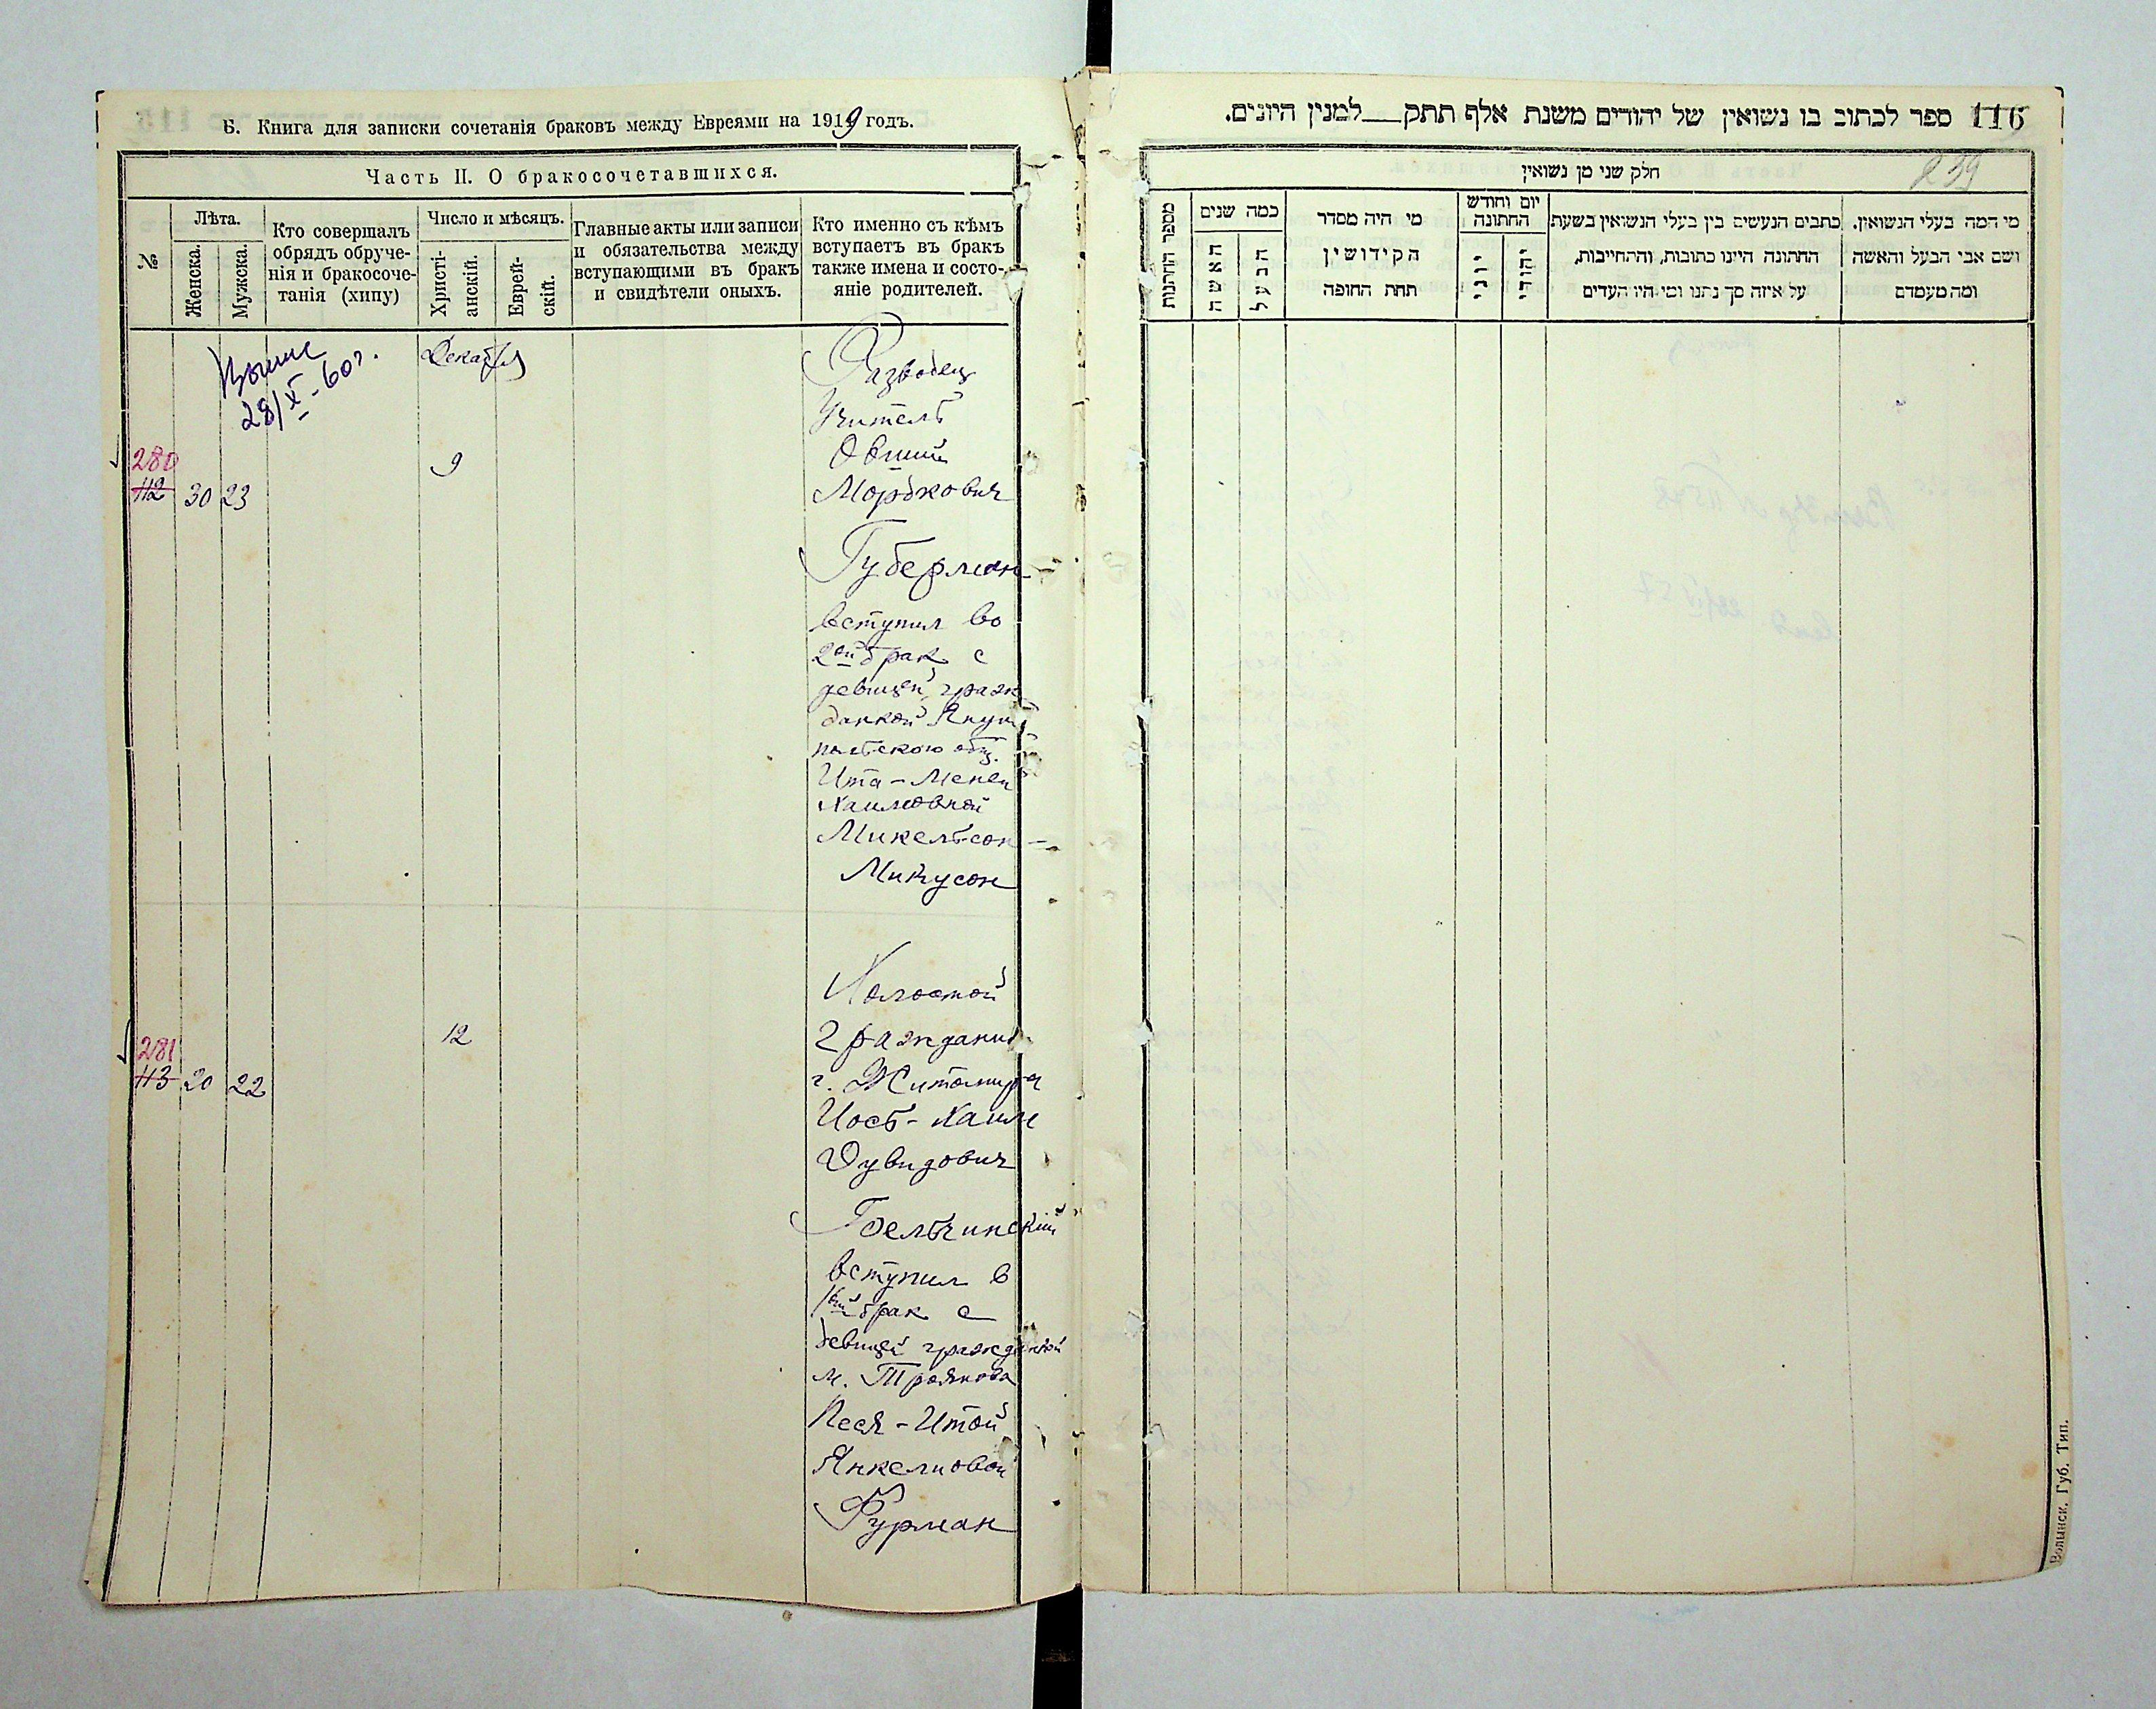 Б. Книга для записки сочетанія браковъ между Евреями на 1919 годъ.
Часть II. О бракосочетавшихся.
№
Лѣта.
Женска.
Мужска.
Кто совершалъ
обрядъ обруче-
нія и бракосоче-
танія (хипу)
Число и мѣсяцъ.
Христі-
анскій.
Еврей-
скій.
Главные акты или записи
и обязательства между
вступающими въ бракъ
и свидѣтели оныхъ.
Кто именно съ кѣмъ
вступаетъ въ бракъ
также имена и состо-
яніе родителей.
28/X-60г.
Декабря
280
112 30 23
9
Разводец
Учитель
Овший
Мордкович
Губерман
вступил во
2ой брак с
девицей граж
данкой Януш
польского общ.
Ита-Менея
Хаимовной
Микельсон-
Микусон
281
113 20 22
12
Холостой
гражданин
г. Житомира
Иось-Хаим
Дувидович
Гдельчинский
вступил в
1ый брак с
девицей гражданкой
м. Троянова
Песя-Итой
Янкелиовой
Фурман
116 ספר לכתוב בו נשואין של יהודים משנת אלף תתק__למנין היונים.
239
חלק שני מן נשואין
מספר החתונות
כמה שנים
האשה
הבעל
מי היה מסדר
הקידושין
תחת החופה
יום וחודש
החתונה
יוני
יהודי
כתבים הנעשים בין בעלי הנשואין בשעת
החתונה היינו כתובות, והתחייבות,
על איזה סך נתנו ומי היו העדים
מי המה בעלי הנשואין,
ושם אבי הבעל והאשה
ומה מעמדם
Волынск. Губ. Тип.